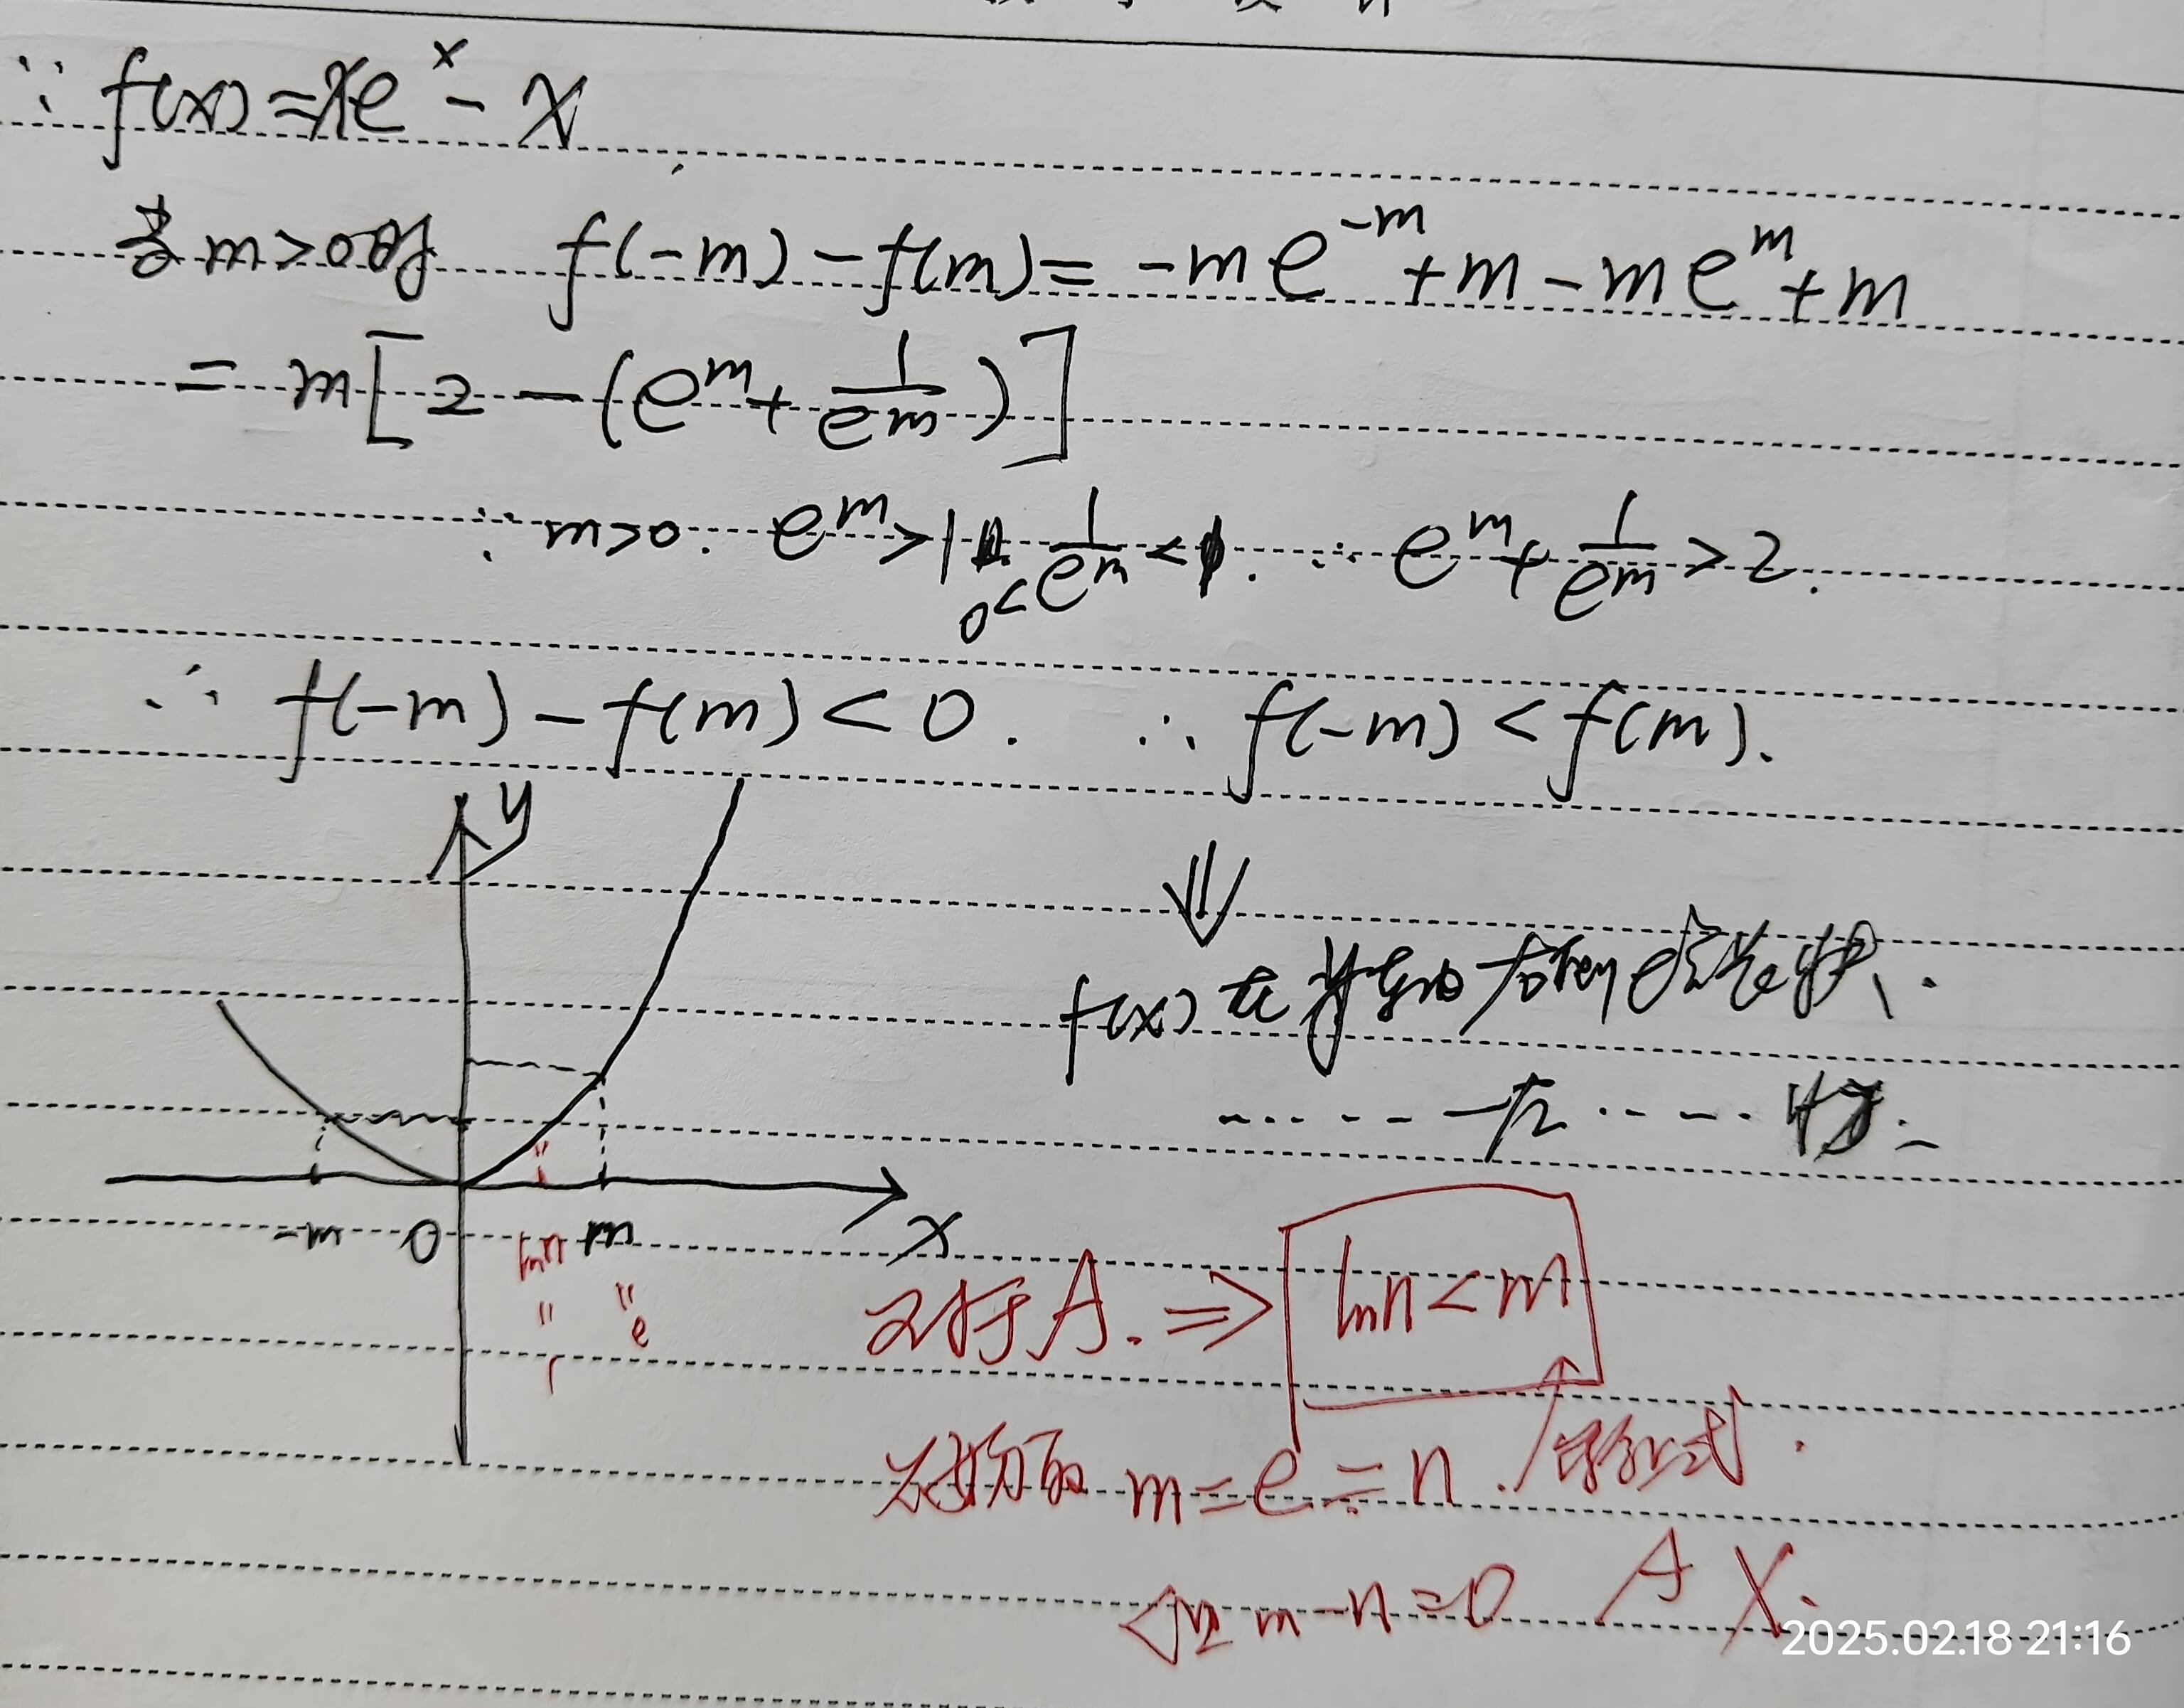 ∵ f(x)=xe^x - x
当m>0时 f(-m)-f(m)= -me^{-m}+m-me^m+m
= m[2-(e^m+\frac{1}{e^m})]
∵ m>0. e^m>1 0<\frac{1}{e^m}<1. ∴ e^m+\frac{1}{e^m}>2.
∴ f(-m)-f(m)<0. ∴ f(-m)<f(m).
y
f(x)在y轴右侧 快.
-m 0 m x
左 慢.
ln n
" "
1 e
对于A. ⇒ ln n<m
m=e=n. 式.
但 m-n=0 A X.
2025.02.18 21:16